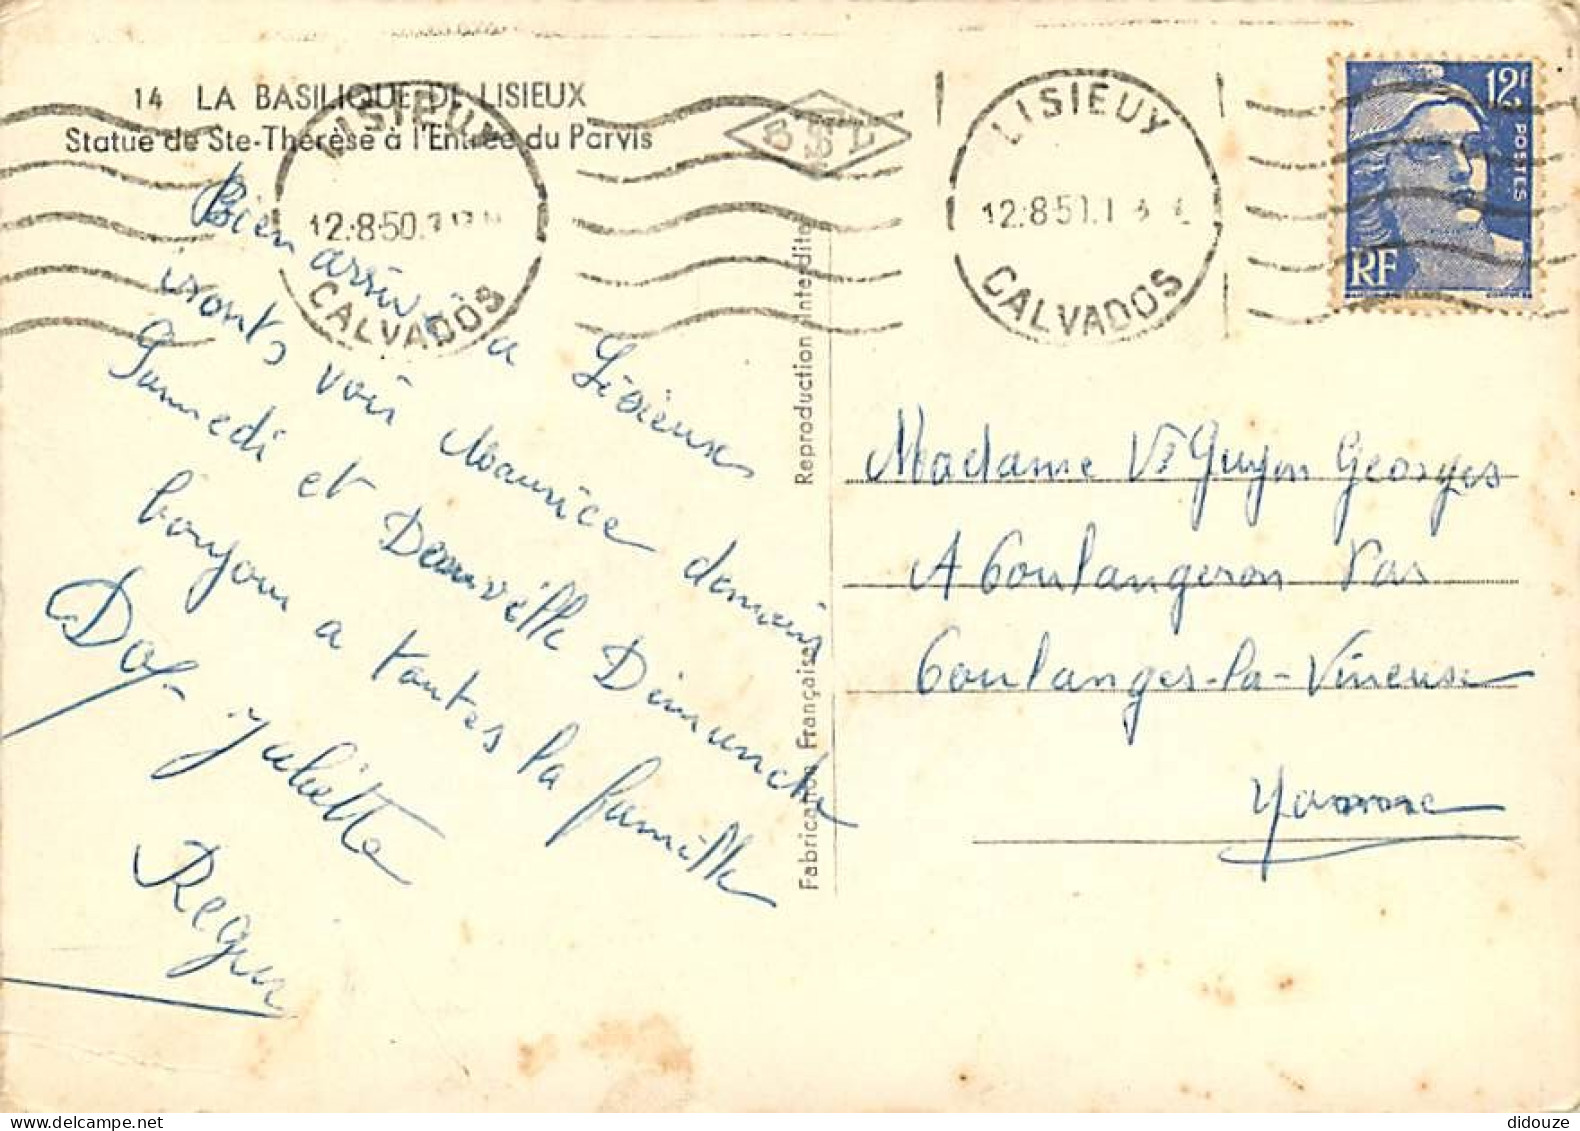 14 LA BASILIQUE DE LISIEUX
Statue de Ste-Thérèse à l'Entrée du Parvis
LISIEUX
12.8.50
CALVADOS
BSL
LISIEUX
12.8.50
CALVADOS
12F
POSTES
RF
Bien arrivé a Lisieux
iront voir Maurice demain
Samedi et Deauville Dimanche
bonjour a toutes la famille
Juliette
Reproduction Interdite
Fabrication Française
Madame Vve Guyon Georges
A Coulangeron Par
Coulanges-la-Vineuse
Yonne
didouze